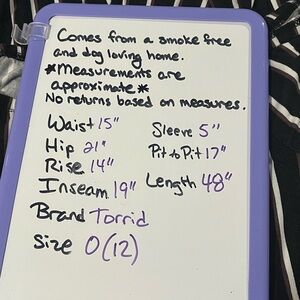 Comes from a smoke free
and dog loving home.
*Measurements are
approximate*
No returns based on measures.
Waist 15"
Hip 21"
Rise 14"
Inseam 19"
Brand Torrid
Size 0(12)
Sleeve 5"
Pit to Pit 17"
Length 48"